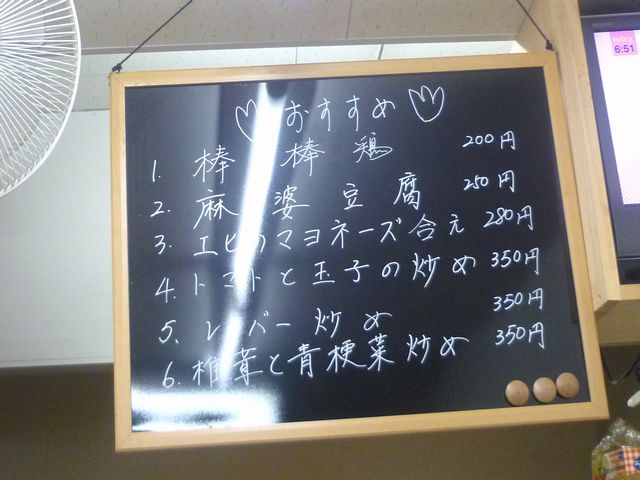 おすすめ
1. 棒棒鶏 200円
2. 麻婆豆腐 250円
3. エビのマヨネーズ合え 280円
4. トマトと玉子の炒め 350円
5. レバー炒め 350円
6. 椎茸と青梗菜炒め 350円
6:51